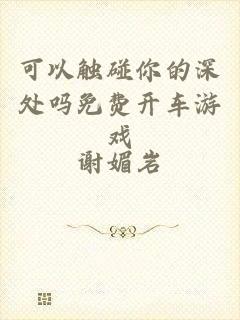 可以触碰你的深
处吗免费开车游
戏
谢媚岩